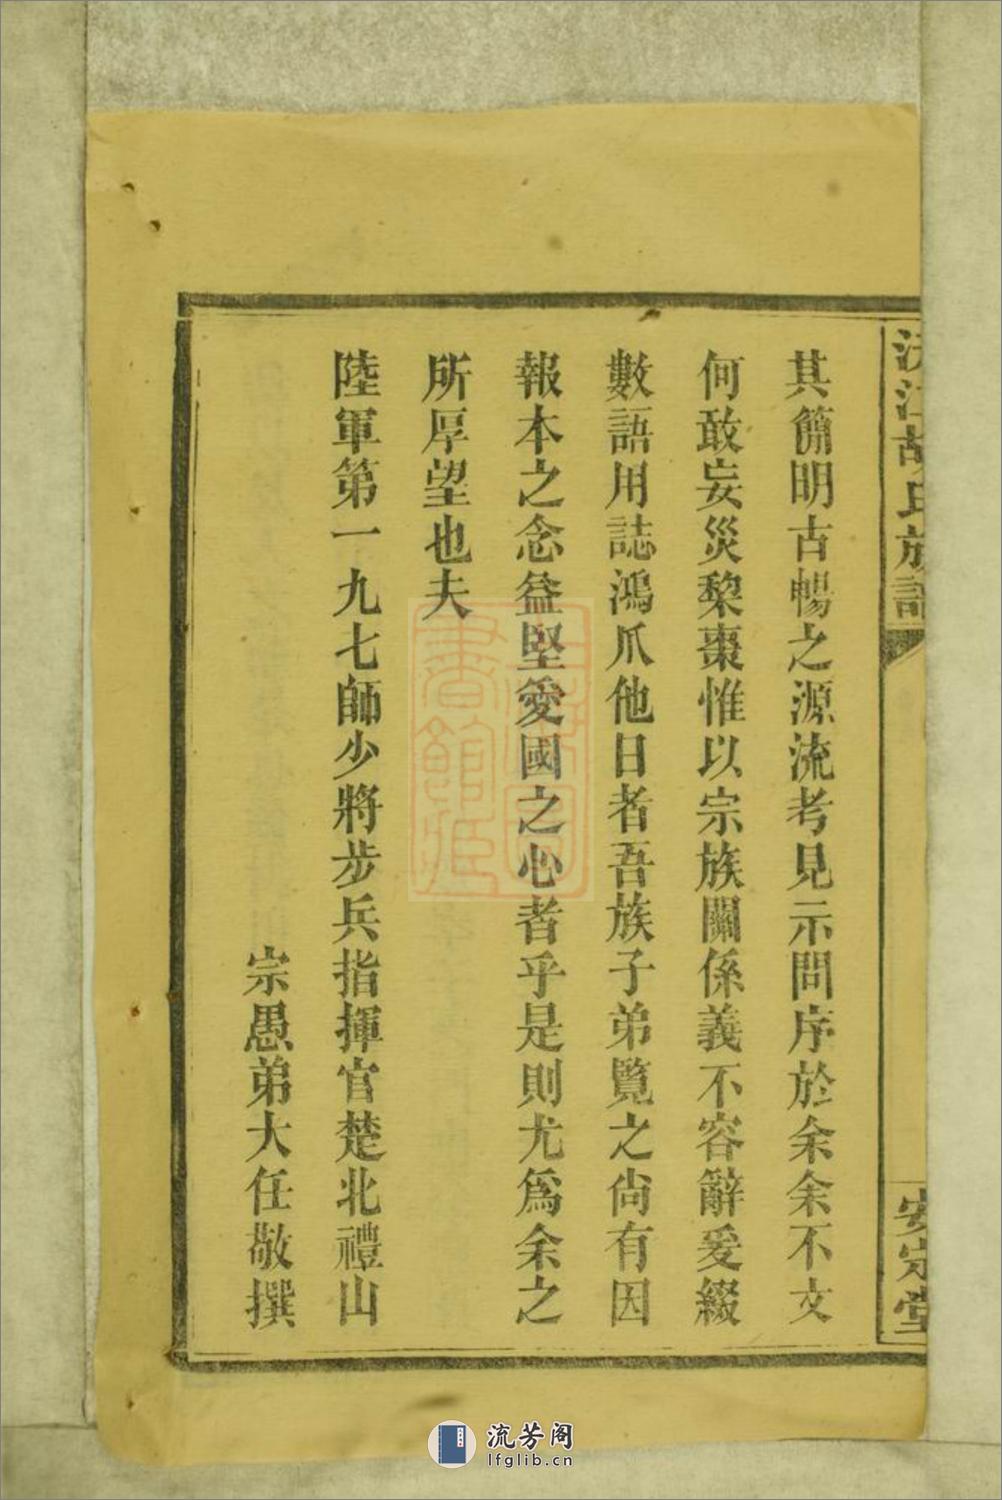 江胡氏族譜
安定堂
其簡明古暢之源流考見示問序於余余不文
何敢妄災棃棗惟以宗族關係義不容辭爰綴
數語用誌鴻爪他日者吾族子弟覽之尙有因
報本之念益堅愛國之心者乎是則尤爲余之
所厚望也夫
陸軍第一九七師少將步兵指揮官楚北禮山
宗愚弟大任敬撰
書館藏
流芳阁
lfglib.cn